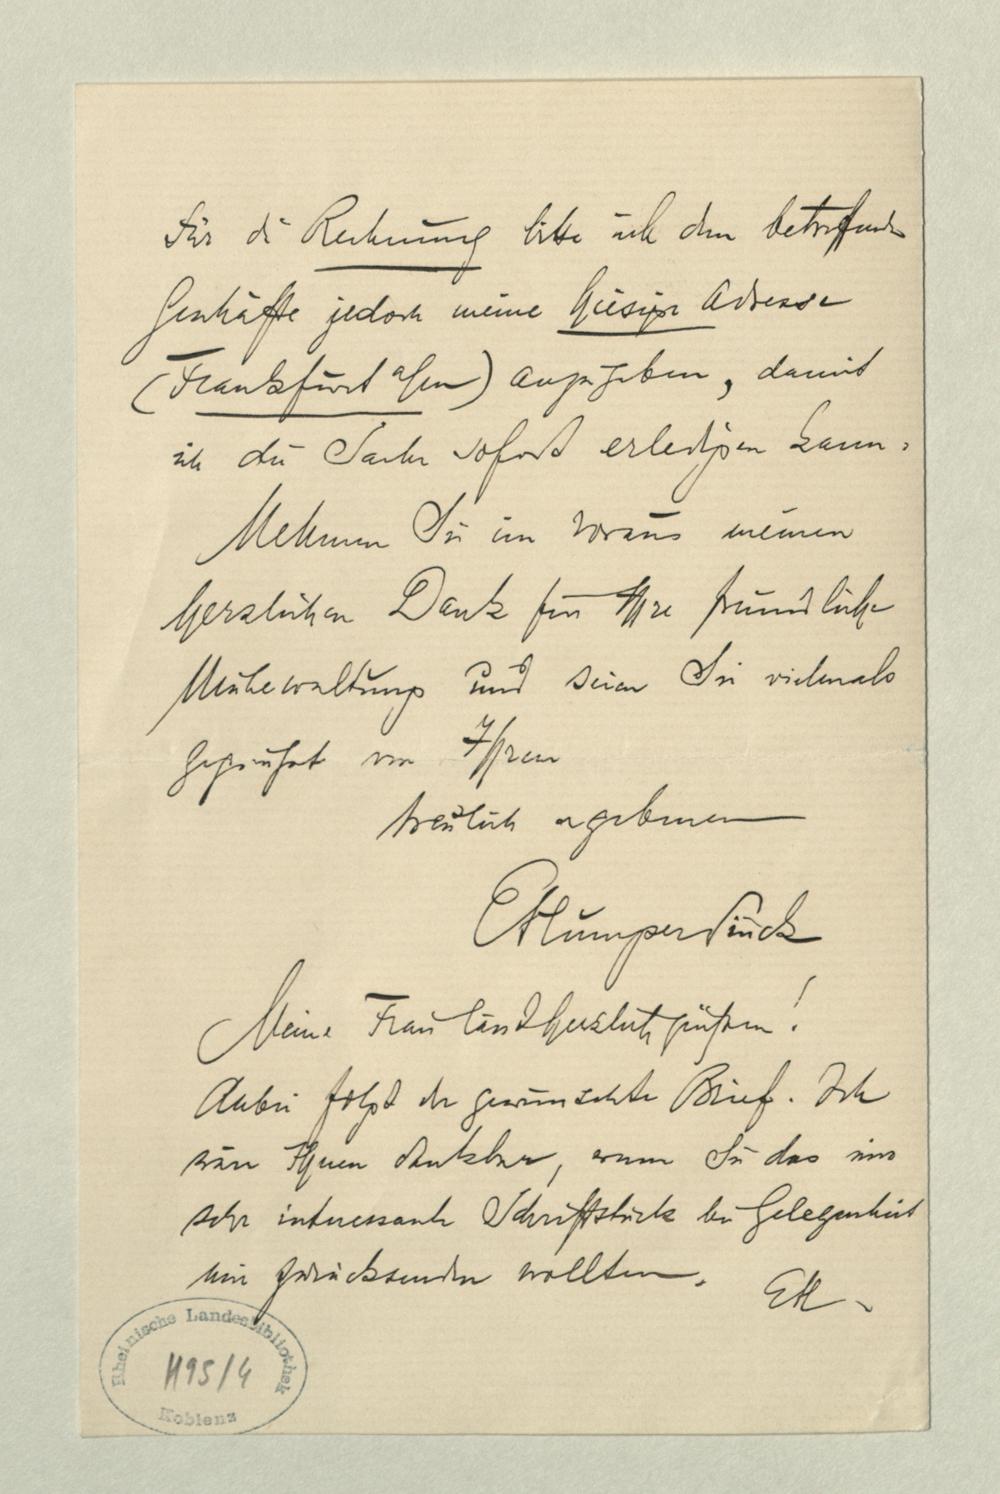 Für die Rechnung bitte ich dem betreffenden
Geschäfte jedoch meine hiesige Adresse
(Frankfurt a/m) anzugeben, damit
ich die Sache sofort erledigen kann.
Nehmen Sie im voraus meinen
herzlichen Dank für Ihre freundliche
Mühewaltung und seien Sie vielmals
gegrüsst von Ihrem
treulich ergebenen
EHumperdinck
Meine Frau lässt herzlich grüßen!
Anbei folgt der gewünschte Brief. Ich
wäre Ihnen dankbar, wenn Sie das uns
sehr interessante Schriftstück bei Gelegenheit
mir zurücksenden wollten.
EH
Rheinische Landesbibliothek
H95/4
Koblenz